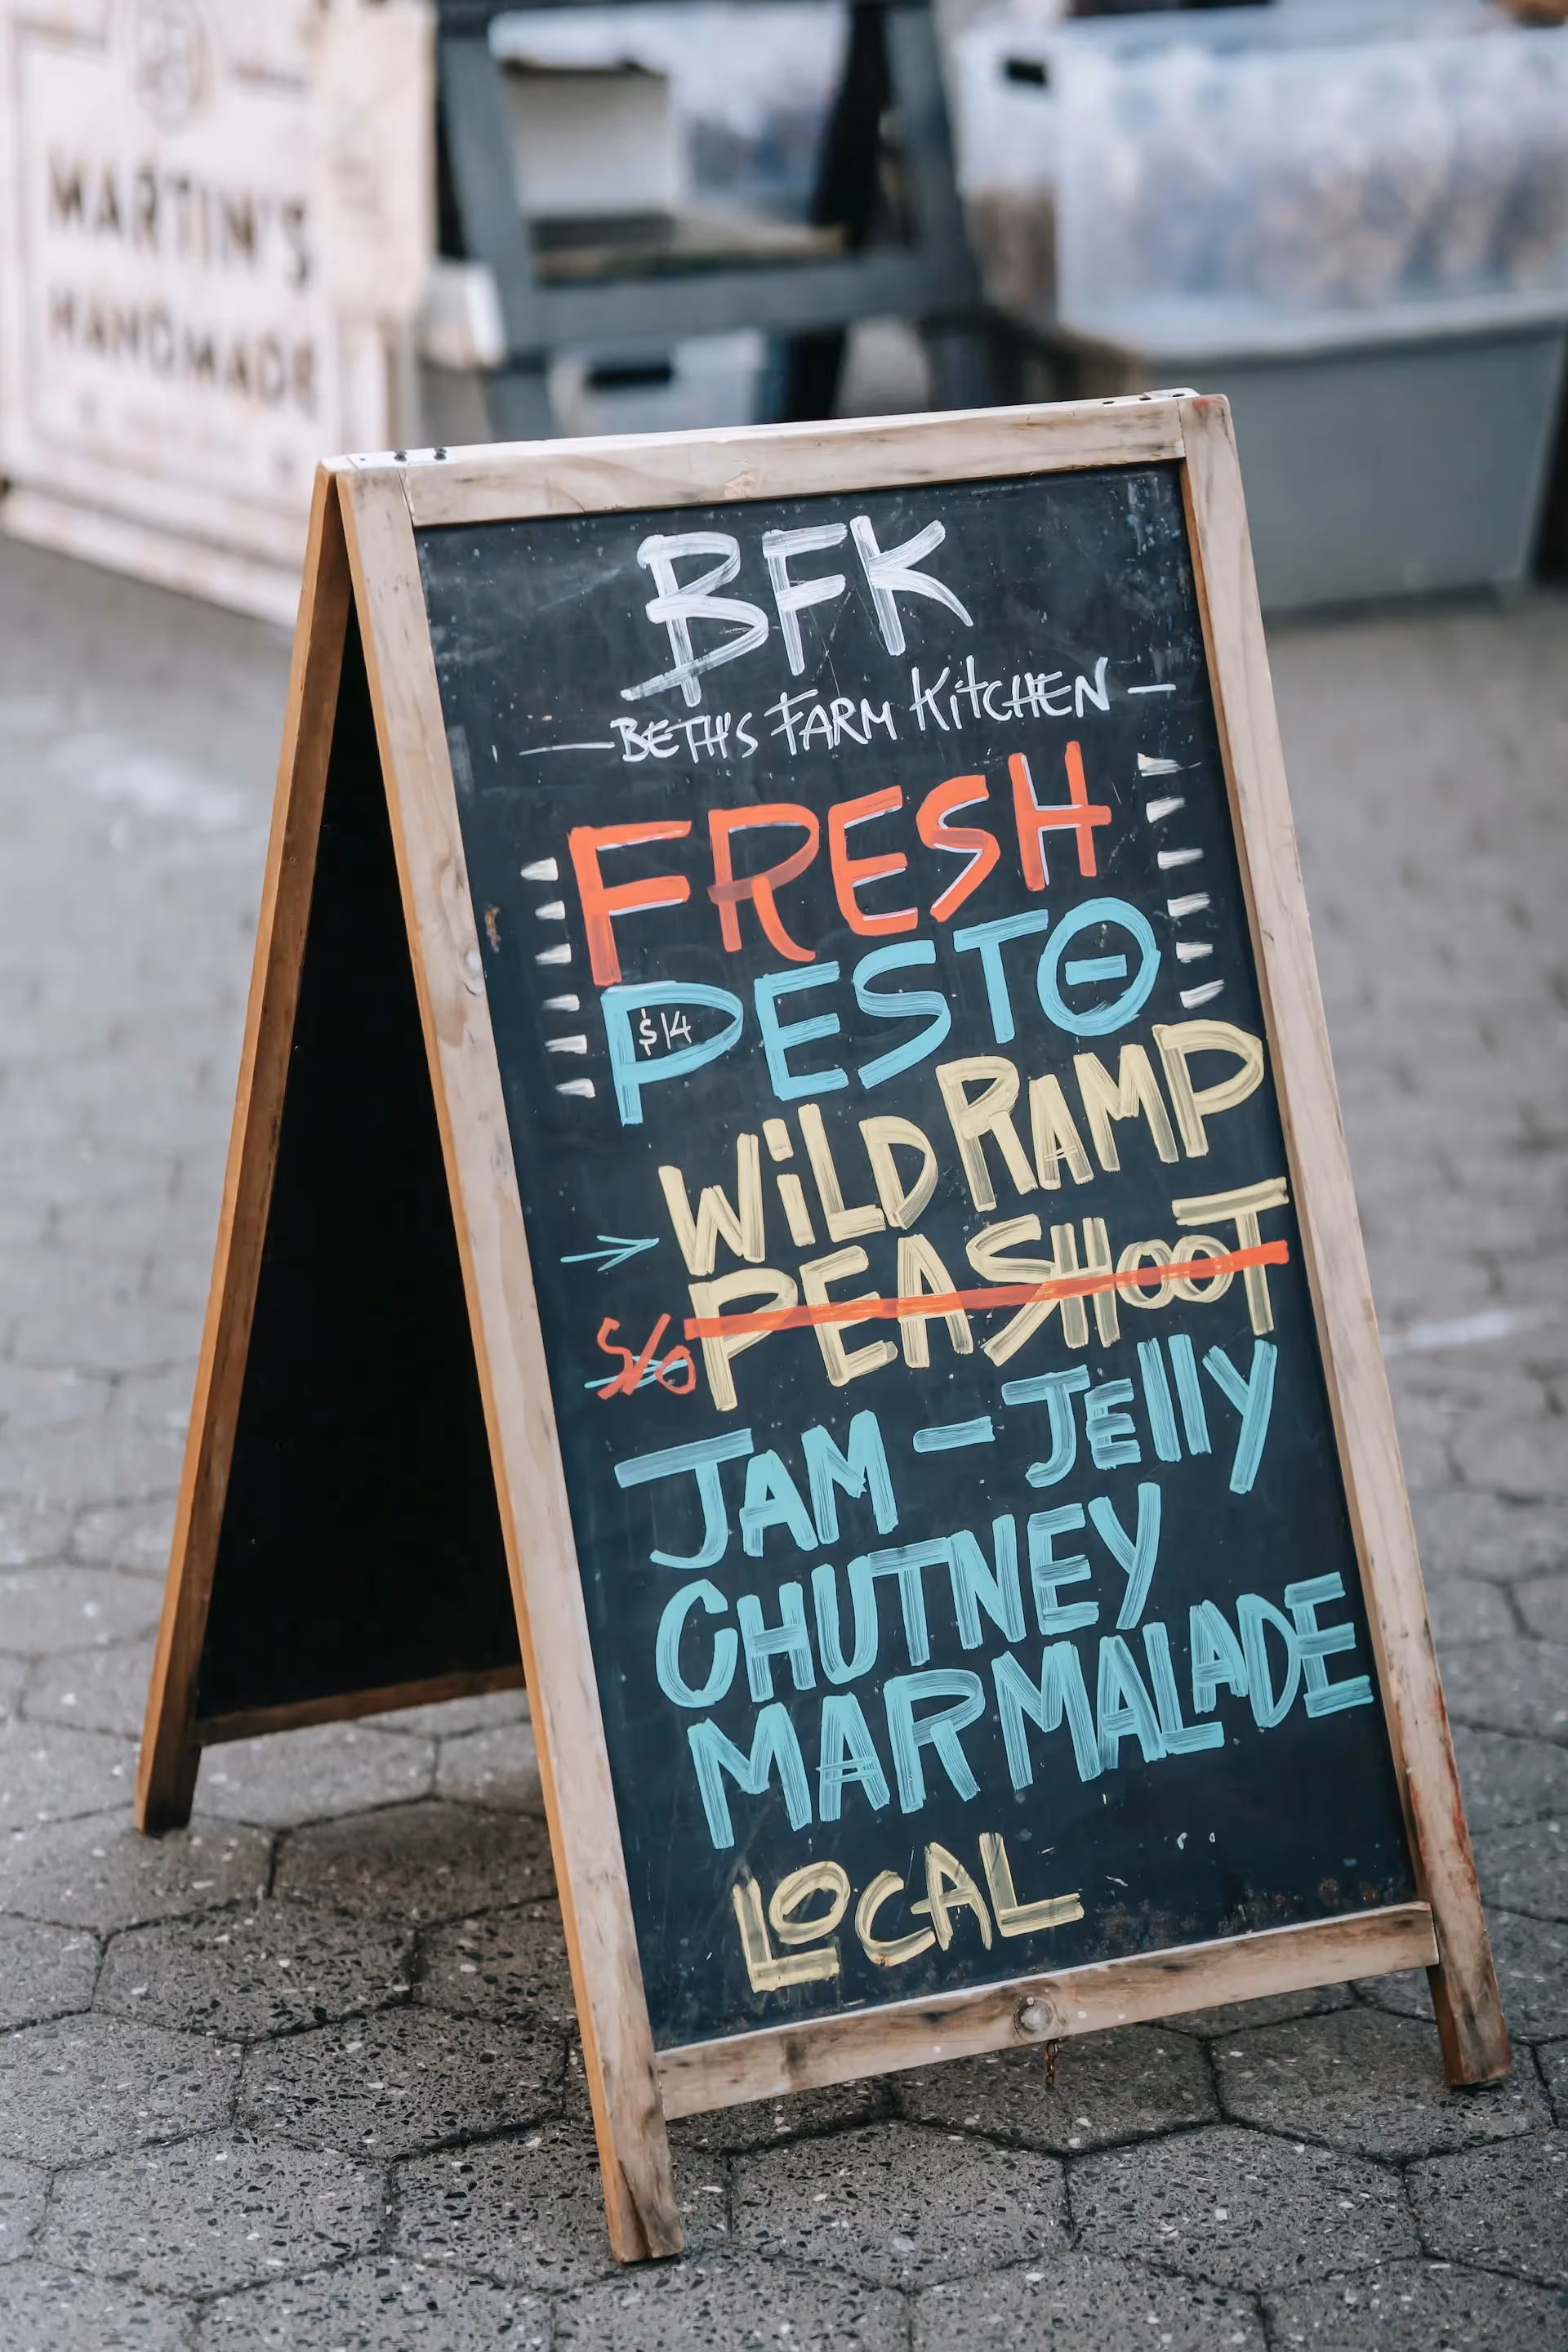 MARTIN'S
HANDMADE
BFK
— BETH'S FARM KitCHEN —
FRESH
PESTO
$14
WiLD RAMP
S/O PEA SHOOT
JAM - JElly
CHUTNEY
MARMALADE
LOCAL